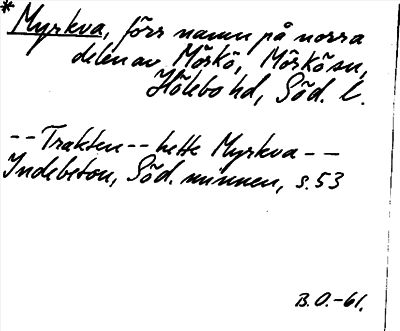 * Myrkva, förr namn på norra
delen av Mörkö, Mörkö sn,
Hölebo hd, Söd. l.
-- Trakten -- hette Myrkva --
Indebetou, Söd. minnen, s. 53
B.O.-61.